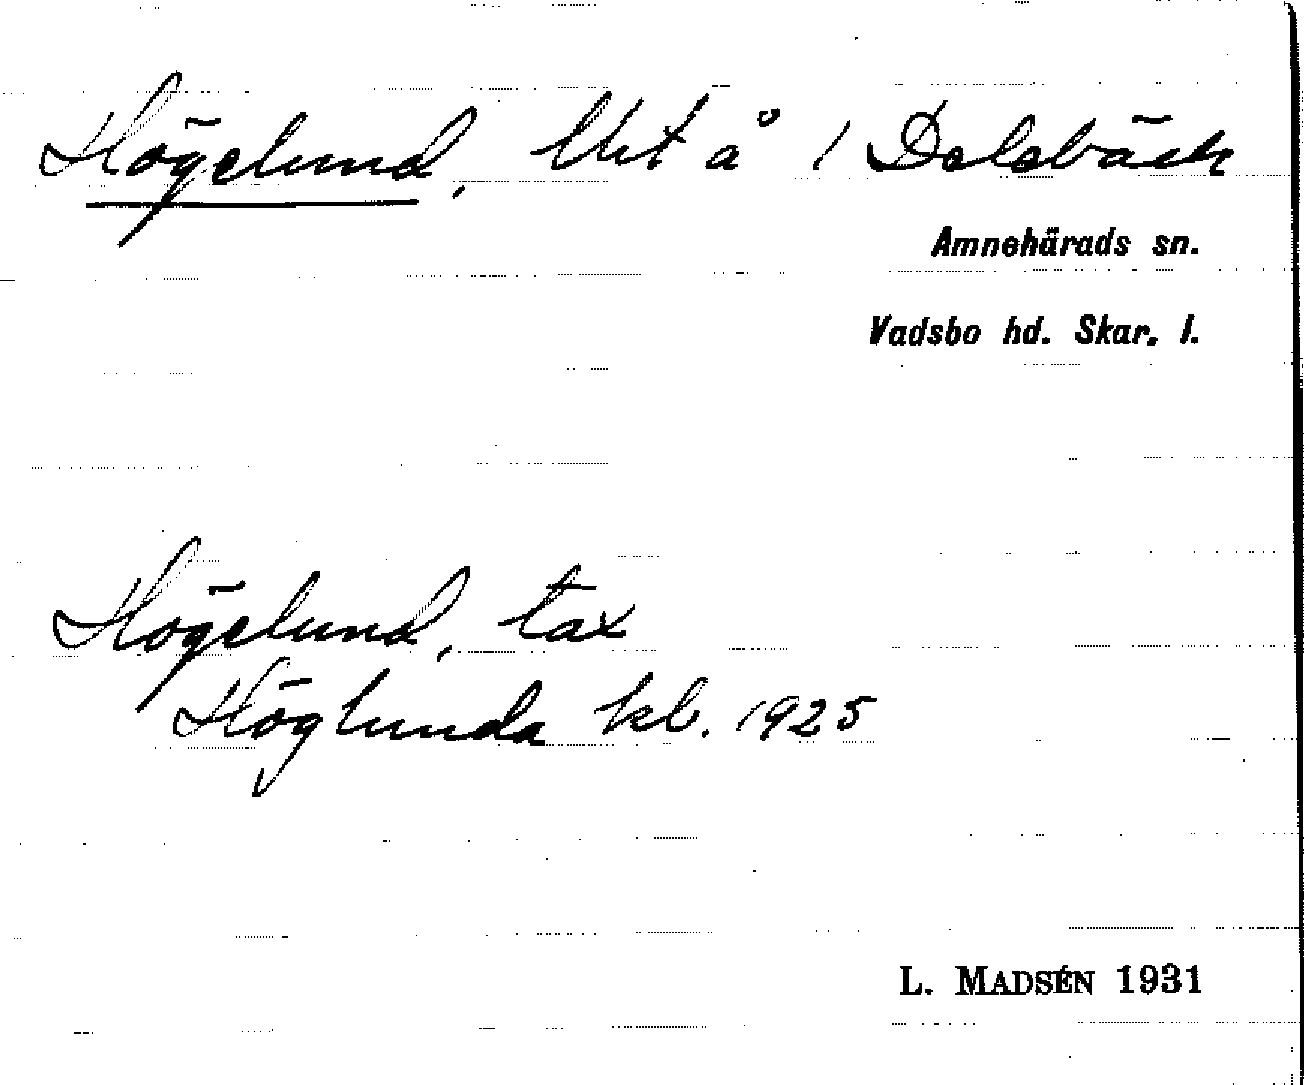 Högelund, Utså 1 Delebäck
Amnehärads sn.
Vadsbo hd. Skar. l.
Högelund, tax
Höglunda kb. 1925
L. MADSÉN 1931